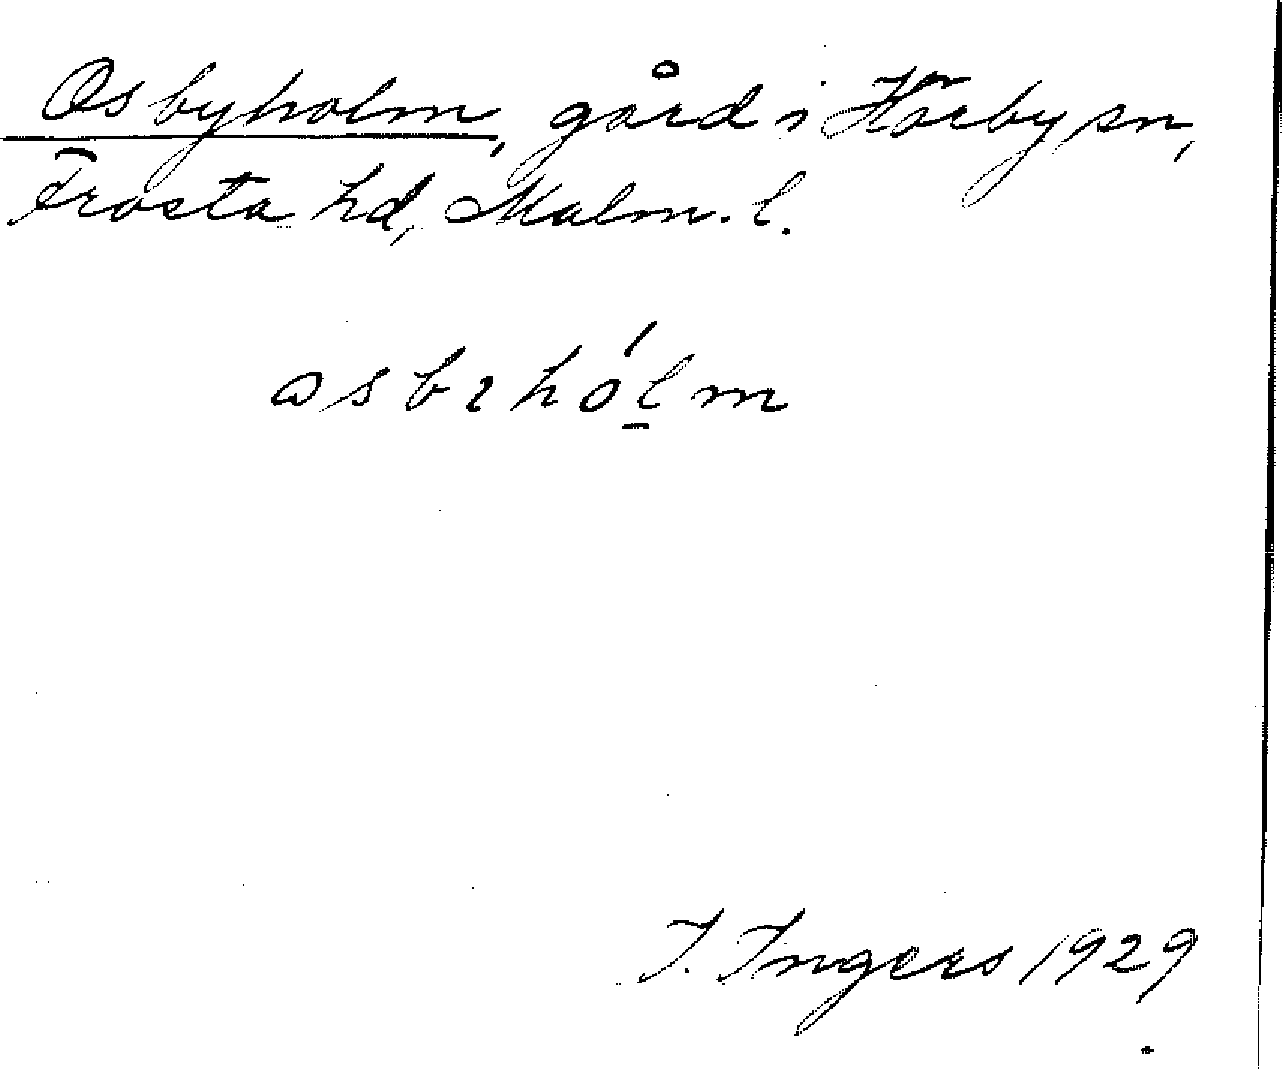 Osbyholm, gård i Hörby sn,
Frosta hd, Malm. l.
I. Ingers 1929